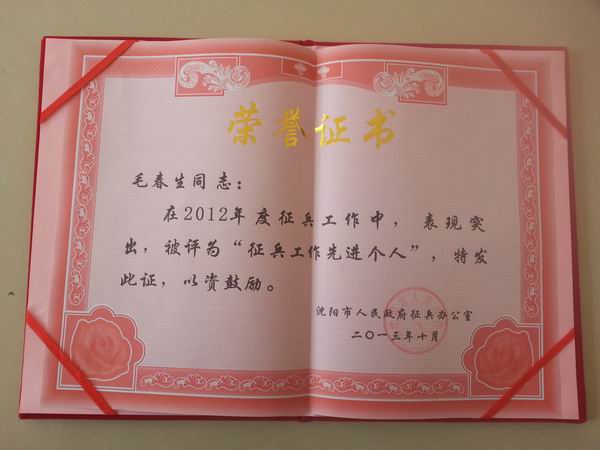 荣誉证书
毛春生同志：
在2012年度征兵工作中，表现突
出，被评为“征兵工作先进个人”，特发
此证，以资鼓励。
沈阳市人民政府征兵办公室
二〇一三年十月